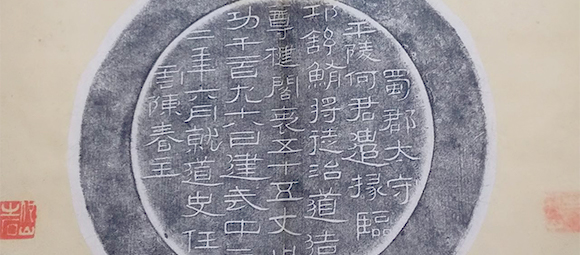 蜀郡大守
平陵何君遣掾臨
邛舒鮪將徒治道造
尊楗閣袤五十五丈
功千百九十八日建武中元
二年六月就道史任
雲陳春主